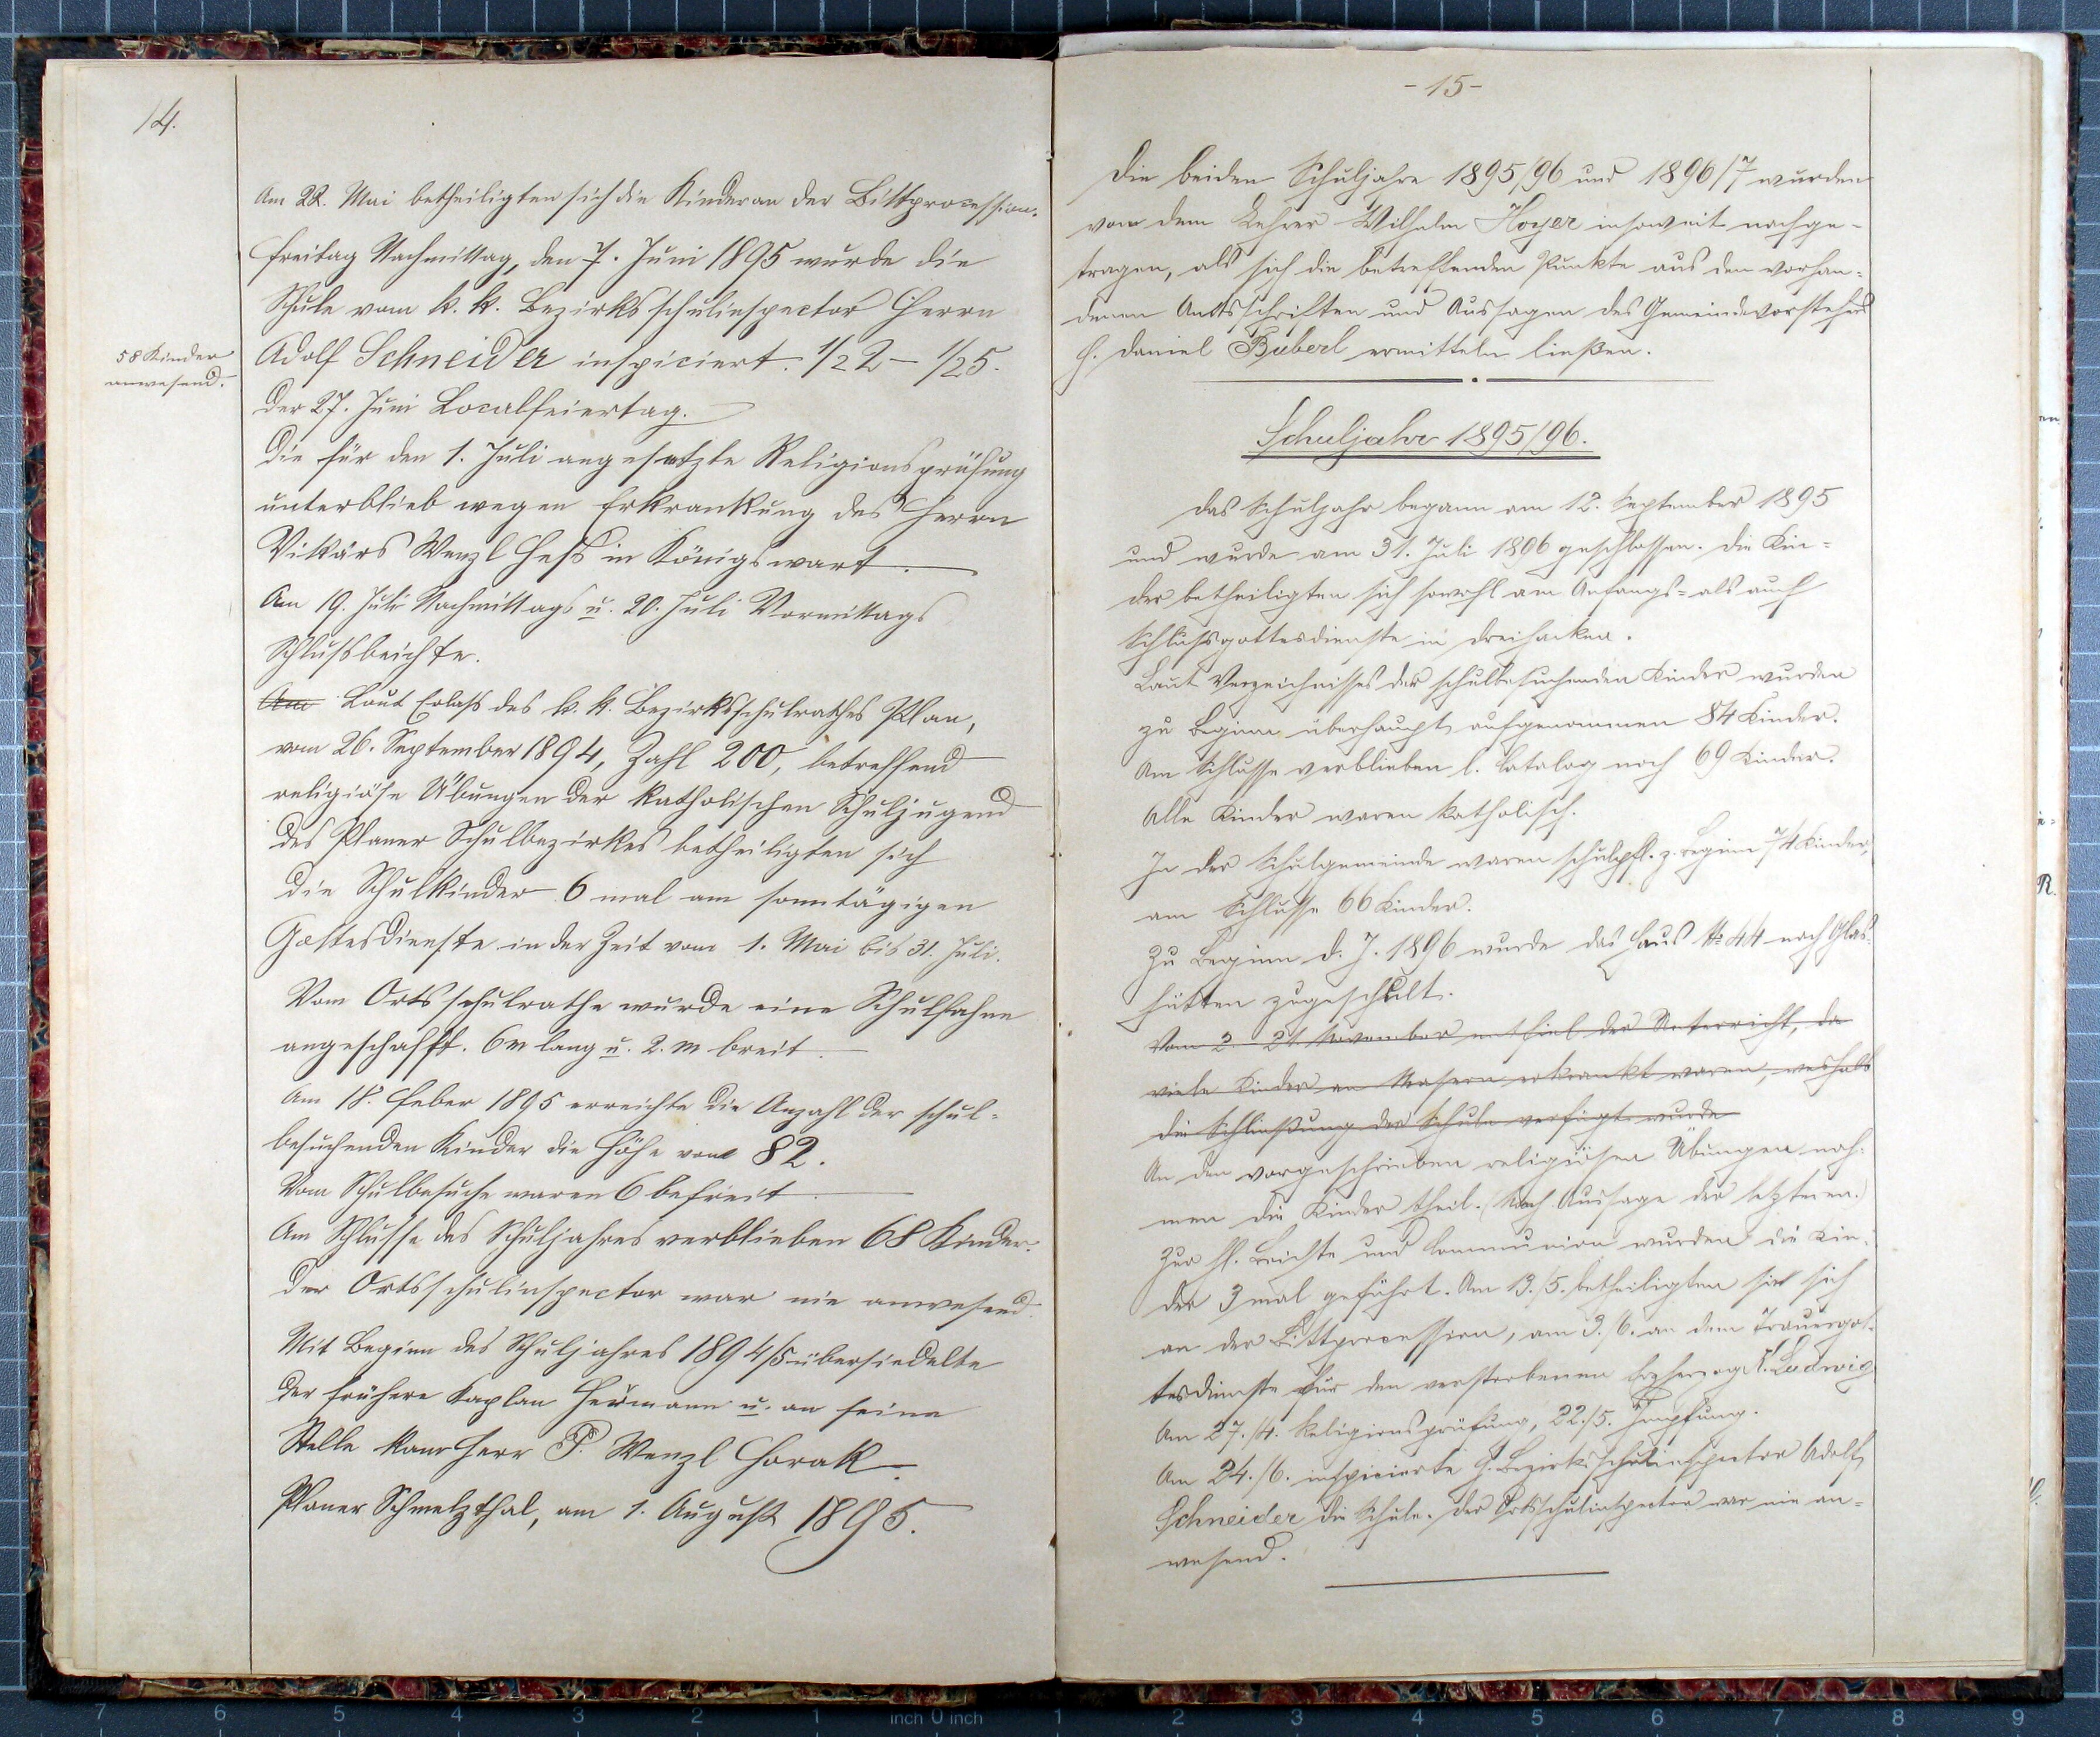 14.
Am 22. Mai betheiligten sich die Kinder an der Bittprocession.
Freitag Nachmittag, den 7. Juni 1895 wurde die
Schule vom k. k. Bezirksschulinspector Herrn
58 Kinder
anwesend.
Adolf Schneider inspiciert. 1/2 2 – 1/2 5.
Der 27. Juni Localfeiertag.
Die für den 1. Juli angesetzte Religionsprüfung
unterblieb wegen Erkrankung des Herrn
Vikärs Wenzl Heß in Königswart.
Am 19. Juli Nachmittags u. 20. Juli Vormittags
Schlußbeichte.
Am Laut Erlaß des k. k. Bezirksschulrathes Plan,
vom 26. September 1894, Zahl 200, betreffend
religiöse Übungen der katholischen Schuljugend
des Planer Schulbezirkes betheiligten sich
die Schulkinder 6 mal am sonntägigen
Gottesdienste in der Zeit vom 1. Mai bis 31. Juli.
Vom Ortsschulrathe wurde eine Schulfahne
angeschafft. 6 m lang u. 2. m breit.
Am 18. Feber 1895 erreichte die Anzahl der schul=
besuchenden Kinder die Höhe von 82.
Vom Schulbesuche waren 6 befreit.
Am Schlusse des Schuljahres verblieben 68 Kinder.
Der Ortsschulinspector war nie anwesend.
Mit Beginn des Schuljahres 1894/5 übersiedelte
der frühere Kaplan Heumann u. an seine
Stelle kam Herr P. Wenzl Horak.
Planer Schmelzthal, am 1. August 1895.
- 15 -
Die beiden Schuljahre 1895/96 und 1896/7 wurden
von dem Lehrer Wilhelm Hoyer insoweit nachge-
tragen, als sich die betreffenden Punkte aus den vorhan=
denen Amtsschriften und Aussagen des Gemeindevorstehers
H. Daniel Büberl ermitteln ließen.
Schuljahr 1895/96.
Das Schuljahr begann am 12. September 1895
und wurde am 31. Juli 1896 geschlossen. Die Kin=
der betheiligten sich sowohl am Anfangs= als auch
Schlußgottesdienste in Dreihacken.
Laut Verzeichnisses der schulbesuchenden Kinder wurden
zu Beginn überhaupt aufgenommen 84 Kinder.
Am Schlusse verblieben l. Catalog noch 69 Kinder.
Alle Kinder waren katholisch.
In der Schulgemeinde waren schulpfl. z. Beginn 74 Kinder,
am Schlusse 66 Kinder.
Zu Beginn d. J. 1896 wurde das Haus № 44 nach Glas=
hütten zugeschult.
Vom 2. – 21 November entfiel der Unterricht, da
viele Kinder an Masern erkrankt waren, weshalb
die Schließung der Schule verfügt wurde
An den vorgeschrieben religiösen Übungen nah=
men die Kinder theil. (Nach Aussage der letzteren.)
Zur hl. Beichte und Communion wurden die Kin=
der 3 mal geführt. Am 13./5. betheiligten sie sich
an der Bittprocession, am 3./6. an dem Trauergot=
tesdienste für den verstorbenen Erzherzog K. Ludwig
Am 27./4. Religionsprüfung, 22./5. Impfung.
Am 24./6. inspicierte H. Bezirksschulinspector Adolf
Schneider die Schule. Der Ortsschulinspector war nie an=
wesend.